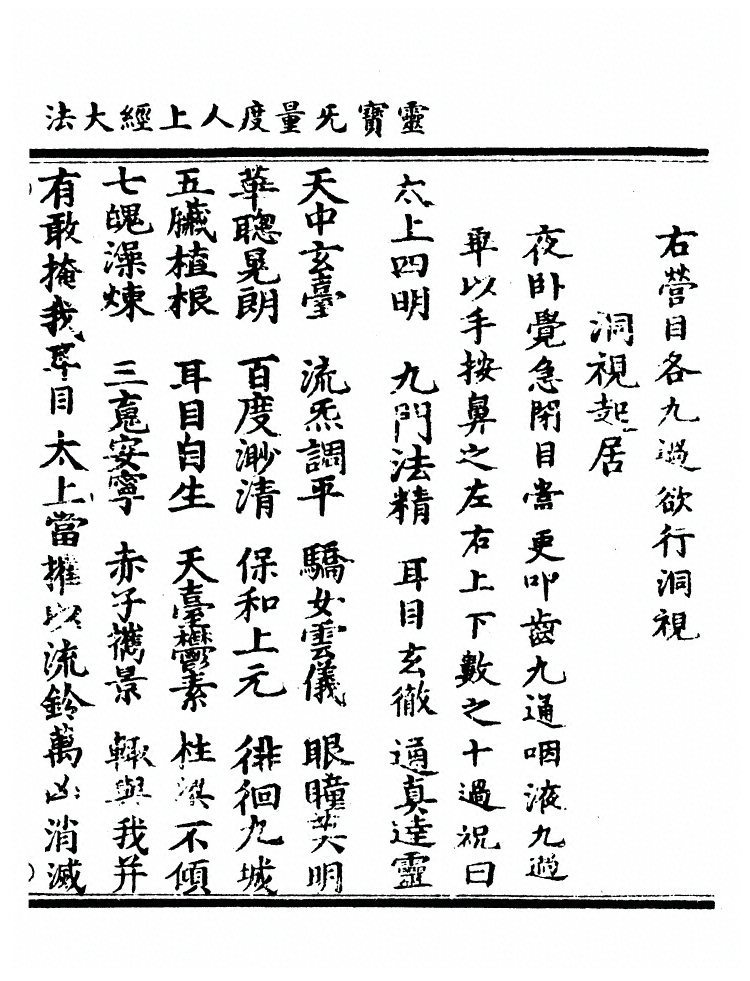 靈寶无量度人上經大法
右營目各九過欲行洞視
洞視起居
夜卧覺急閉目當更叩齒九通咽液九過
畢以手按鼻之左右上下數之十過祝曰
太上四明 九門法精 耳目玄徹 通真達靈
天中玄臺 流炁調平 驕女雲儀 眼瞳英明
華聰晃朗 百度渺清 保和上元 徘徊九城
五臟植根 耳目自生 天臺鬱素 柱梁不傾
七魄澡煉 三䰟安寧 赤子擕景 輙與我并
有敢掩我耳目太上當摧以流鈴萬凶消滅